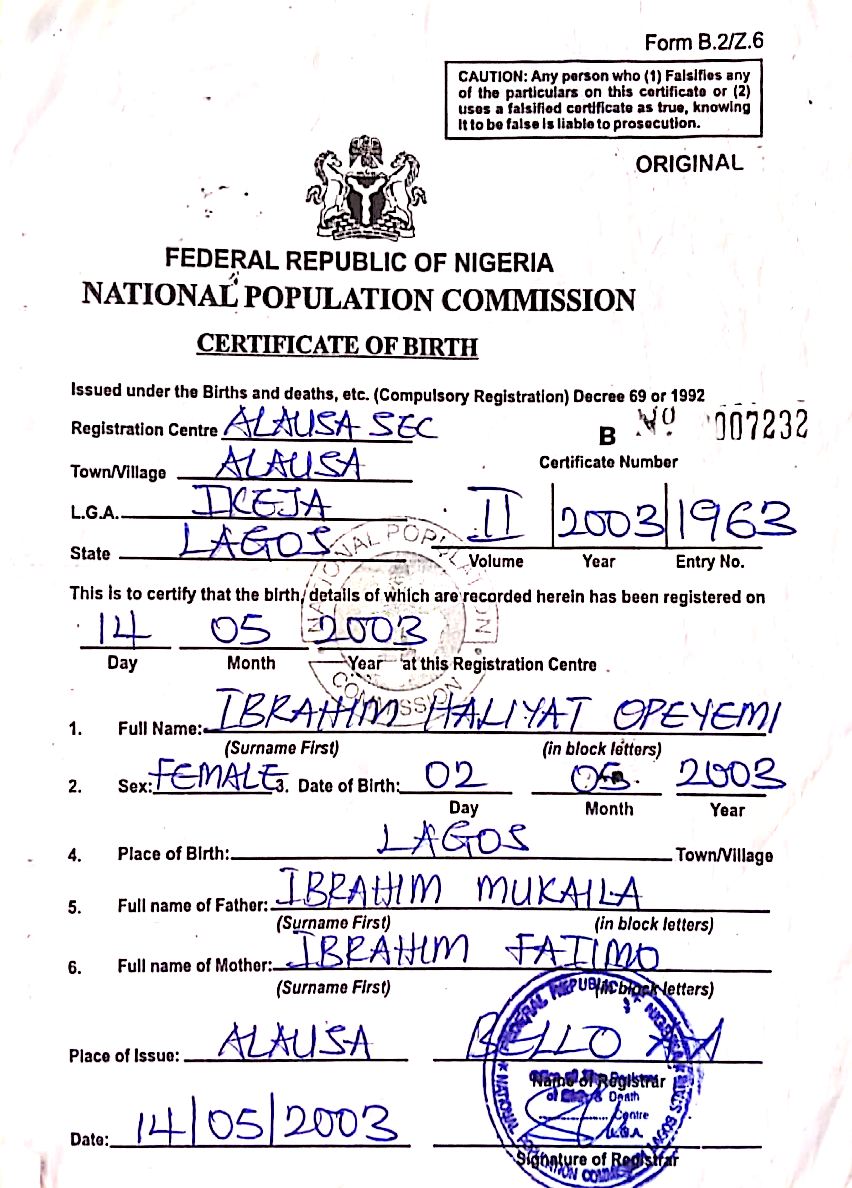 Form B.2/Z.6
CAUTION: Any person who (1) Falsifies any
of the particulars on this certificate or (2)
uses a falsified certificate as true, knowing
it to be false is liable to prosecution.
ORIGINAL
FEDERAL REPUBLIC OF NIGERIA
NATIONAL POPULATION COMMISSION
CERTIFICATE OF BIRTH
Issued under the Births and deaths, etc. (Compulsory Registration) Decree 69 or 1992
Registration Centre ALAUSA SEC
B No 007232
Certificate Number
Town/Village ALAUSA
L.G.A. IKEJA
State LAGOS
II 2003 1963
Volume Year Entry No.
This is to certify that the birth, details of which are recorded herein has been registered on
14 05 2003
Day Month Year at this Registration Centre
NATIONAL POPULATION COMMISSION
1. Full Name: IBRAHIM HALIYAT OPEYEMI
(Surname First) (in block letters)
2. Sex: FEMALE 3. Date of Birth: 02 05 2003
Day Month Year
4. Place of Birth: LAGOS Town/Village
5. Full name of Father: IBRAHIM MUKAILA
(Surname First) (in block letters)
6. Full name of Mother: IBRAHIM FATIMO
(Surname First) (in block letters)
Place of Issue: ALAUSA BELLO
Name of Registrar
Date: 14/05/2003
Signature of Registrar
FEDERAL REPUBLIC OF NIGERIA
NATIONAL POPULATION
Death
Centre
L.G.A.